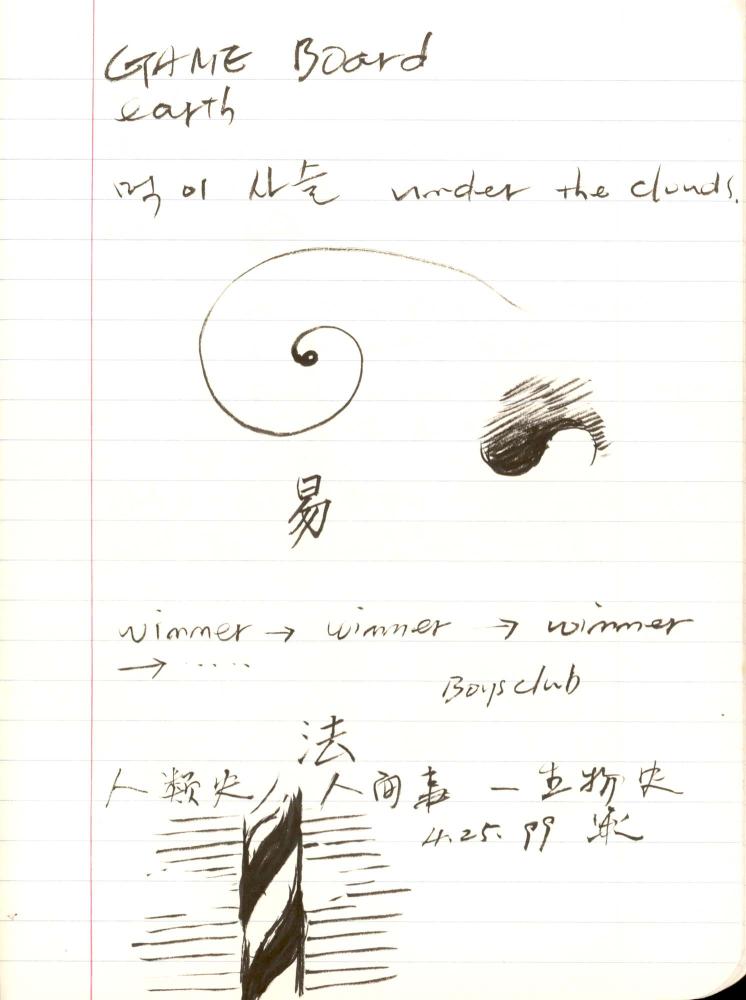 GAME Board
earth
먹이 사슬 under the clouds.
易
winner → winner → winner
→ .....
Boys club
法
人類史 / 人間 — 生物史
4.25.99